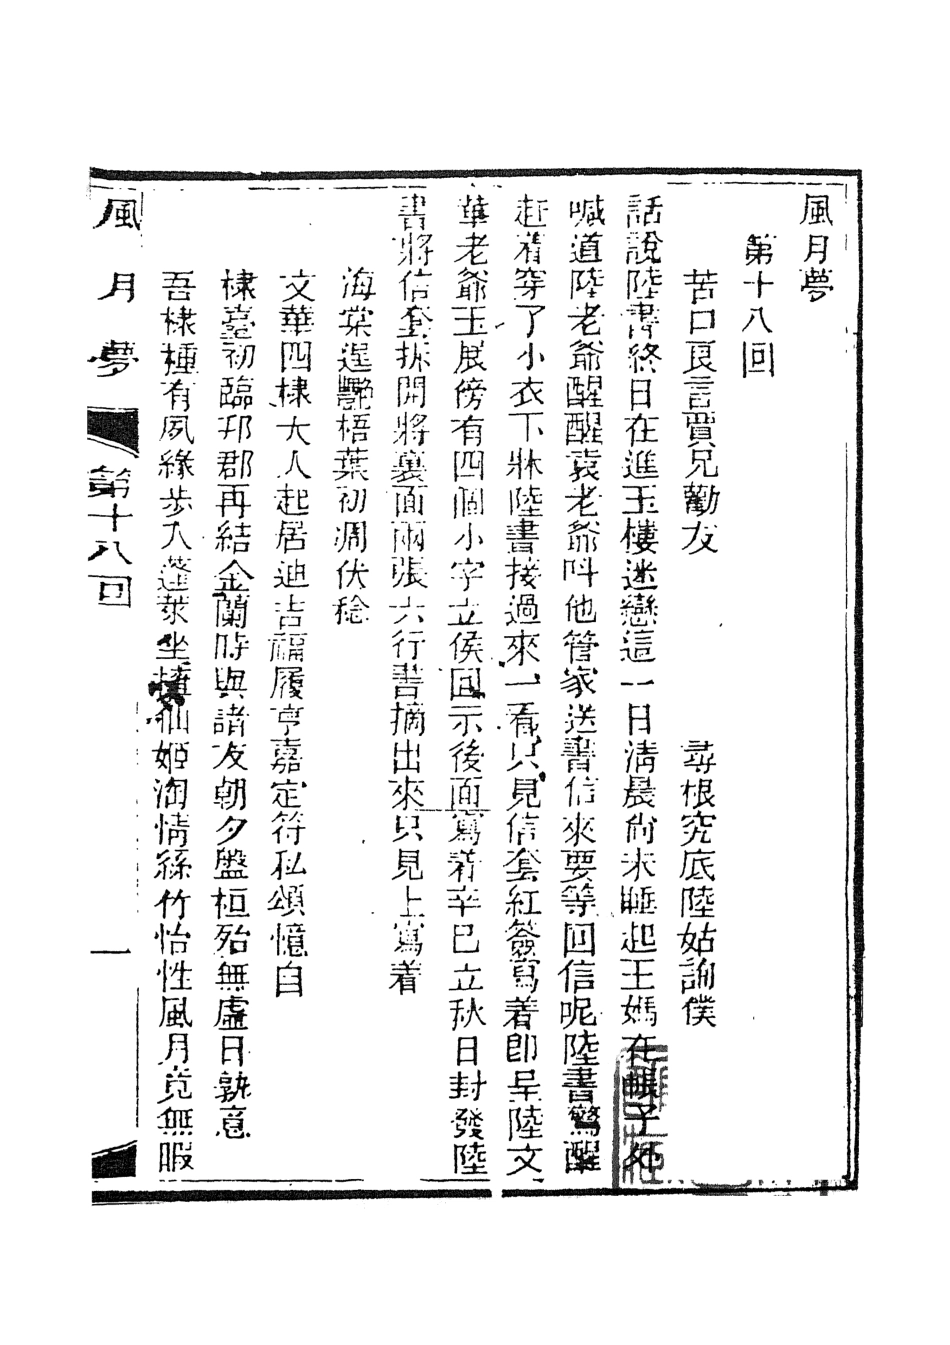 風月夢
第十八回
苦口良言賈兄勸友　尋根究底陸姑詢僕
話說陸書終日在進玉樓迷戀這一日清晨尚未睡起王媽在帳子外
喊道陸老爺醒醒袁老爺呌他管家送書信來要等回信呢陸書驚醒
赶着穿了小衣下牀陸書接過來一看只見信套紅簽寫着卽呈陸文
華老爺玉展傍有四個小字立侯回示後面寫着辛巳立秋日封發陸
書將信套拆開將裏面兩張六行書摘出來只見上寫着
海棠逞艷梧葉初凋伏稔
文華四棣大人起居迪吉福履亨嘉定符私頌憶自
棣臺初臨邗郡再結金蘭時與諸友朝夕盤桓殆無虛日孰意
吾棣種有夙緣步入蓬萊坐擁仙姬淘情絲竹怡性風月竟無暇
風月夢
第十八回
一